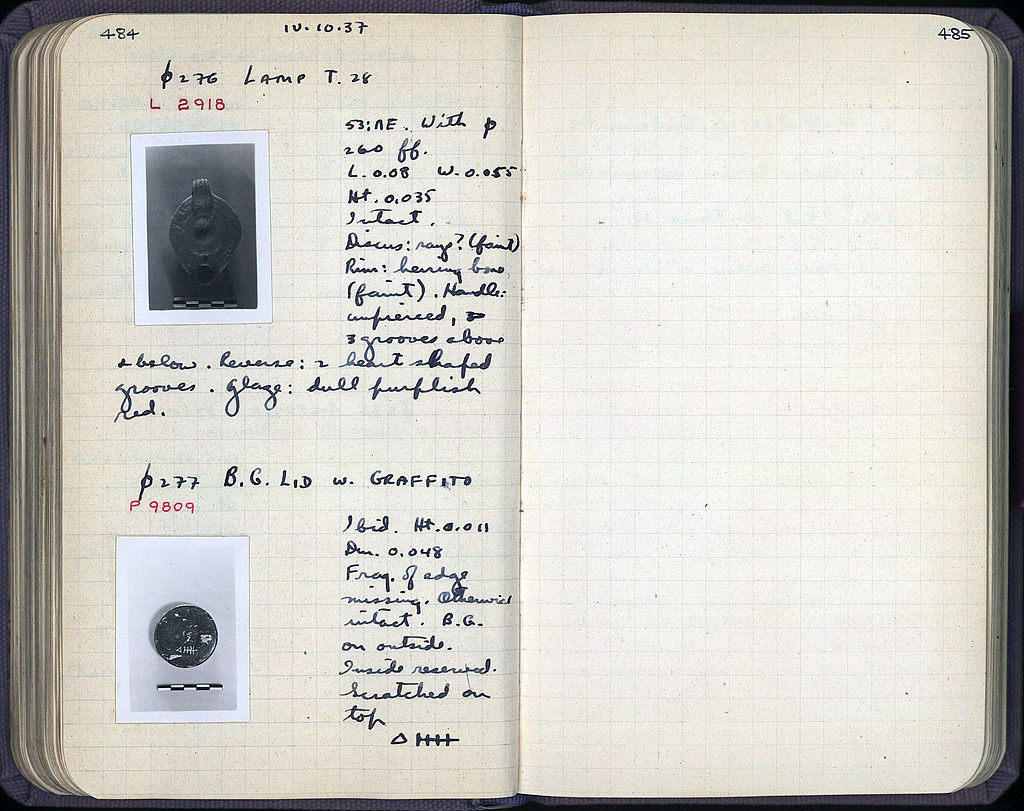 484
IV.10.37
485
φ276 LAMP T. 28
L 2918
53:ΠΕ. With φ
260 ff.
L. 0.08 W. 0.055
Ht. 0.035
Intact.
Discus: rays? (faint)
Rim: herring bone
(faint). Handle:
unpierced,
3 grooves above
& below. Reverse: 2 heart shaped
grooves. Glaze: dull purplish
red.
φ277 B.G. LID W. GRAFFITO
P 9809
Ibid. Ht. 0.011
Dm. 0.048
Frag. of edge
missing. Otherwise
intact. B.G.
on outside.
Inside reserved.
Scratched on
top
ΔHHH